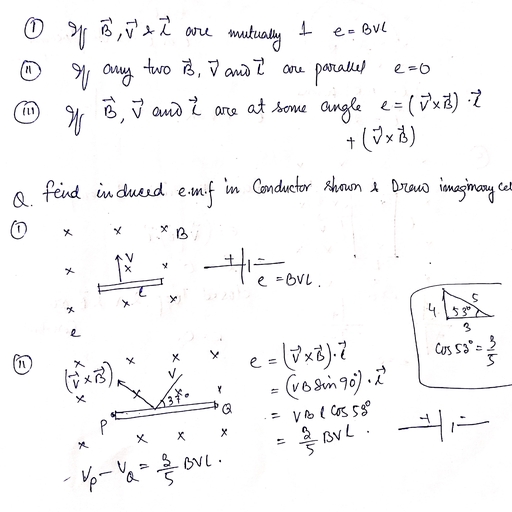 (I) If B⃗, V⃗ & l⃗ are mutually ⊥ e = BVL
(II) If any two B⃗, V⃗ and l⃗ are parallel e=0
(III) If B⃗, V⃗ and l⃗ are at some angle e = (V⃗×B⃗)·l⃗
+ (V⃗×B⃗)
Q. feind induced e.m.f in Conductor shown & Draw imaginary cel
(I) x x x B
x V x x
+ -
l
e = BVL.
x x x
e
4 5 53° 3
Cos 53° = 3/5
(II) x x x x
(V⃗×B⃗) V 37°
x x x x
P Q
x x x x x
e = (V⃗×B⃗)·l⃗
= (VB Sin 90°)·l⃗
= VBl Cos 53°
= 3/5 BVL.
+ -
- Vp - VQ = 3/5 BVL.